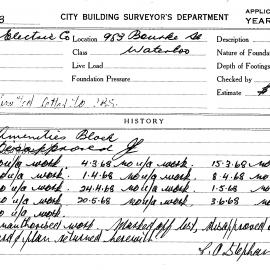 CITY BUILDING SURVEYOR'S DEPARTMENT APPLIC
YEAR
Electric Co Location 983 Bourke St Description
Class Waterloo Nature of Foundation
Live Load Depth of Footings
Foundation Pressure Checked by
Estimate $
HISTORY
Amenities Block
Disapproved
u/a work. 4.3.68 no u/a work. 15.3.68 no
u/a work. 1.4.68 no u/a work. 8.4.68 no
u/a work. 24.4.68 no u/a work. 1.5.68 no
u/a work. 20.5.68 no u/a work. 3.6.68 no
work.
unauthorised work. Marked off list, disapproved
plan returned herewith